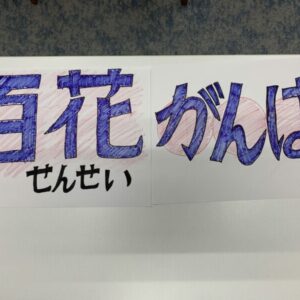 百花 がんば
せんせい